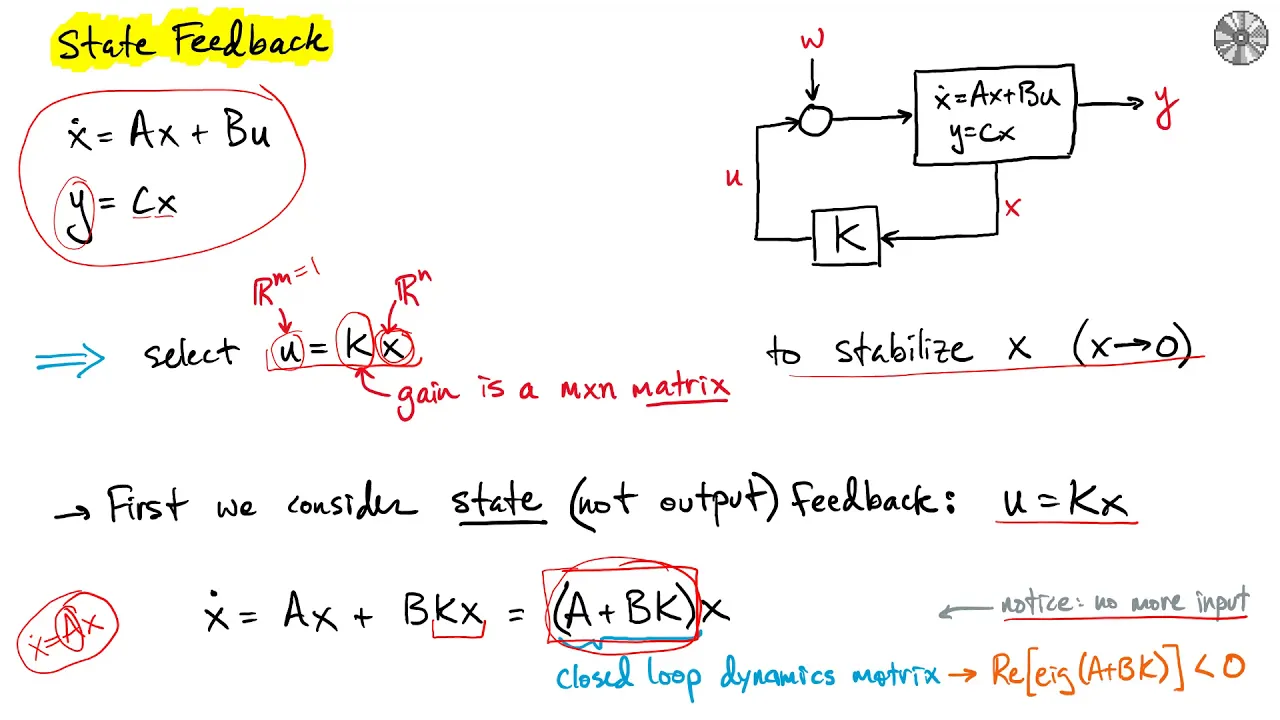 State Feedback
ẋ = Ax + Bu
y = Cx
w
ẋ = Ax + Bu
y = Cx
y
u
x
K
ℝ^m = 1
ℝ^n
⇒ select u = Kx to stabilize x (x→0)
gain is a mxn matrix
→ First we consider state (not output) feedback: u = Kx
ẋ = Ax
ẋ = Ax + BKx = (A + BK)x
← notice: no more input
closed loop dynamics matrix → Re[eig(A+BK)] < 0